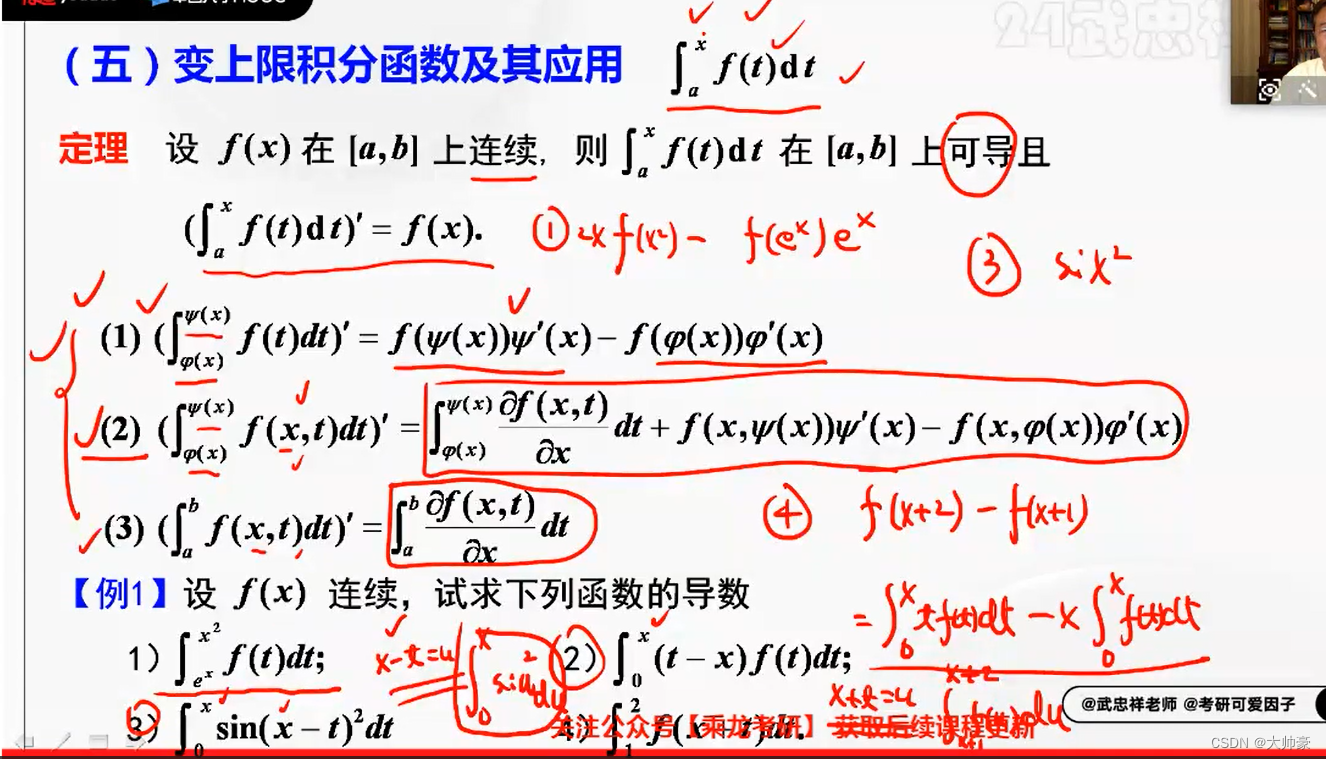 24武忠祥
(五)变上限积分函数及其应用 ∫_a^x f(t)dt
定理 设 f(x) 在 [a,b] 上连续, 则 ∫_a^x f(t)dt 在 [a,b] 上可导且
(∫_a^x f(t)dt)′ = f(x). ① 2x f(x²) − f(e^x)e^x
③ six²
(1) (∫_{φ(x)}^{ψ(x)} f(t)dt)′ = f(ψ(x))ψ′(x) − f(φ(x))φ′(x)
(2) (∫_{φ(x)}^{ψ(x)} f(x,t)dt)′ = ∫_{φ(x)}^{ψ(x)} ∂f(x,t)/∂x dt + f(x,ψ(x))ψ′(x) − f(x,φ(x))φ′(x)
(3) (∫_a^b f(x,t)dt)′ = ∫_a^b ∂f(x,t)/∂x dt
④ f(x+2) − f(x+1)
【例1】设 f(x) 连续, 试求下列函数的导数
= ∫_0^x t f(t)dt − x ∫_0^x f(t)dt
1) ∫_{e^x}^{x²} f(t)dt; x−t=u ∫_0^x siu²du 2) ∫_0^x (t−x)f(t)dt;
3) ∫_0^x sin(x−t)²dt 4) ∫_1^2 f(x+t)dt. x+t=u ∫_{x+1}^{x+2} f(u)du
关注公众号【乘龙考研】获取后续课程更新
@武忠祥老师 @考研可爱因子
CSDN @大帅豪